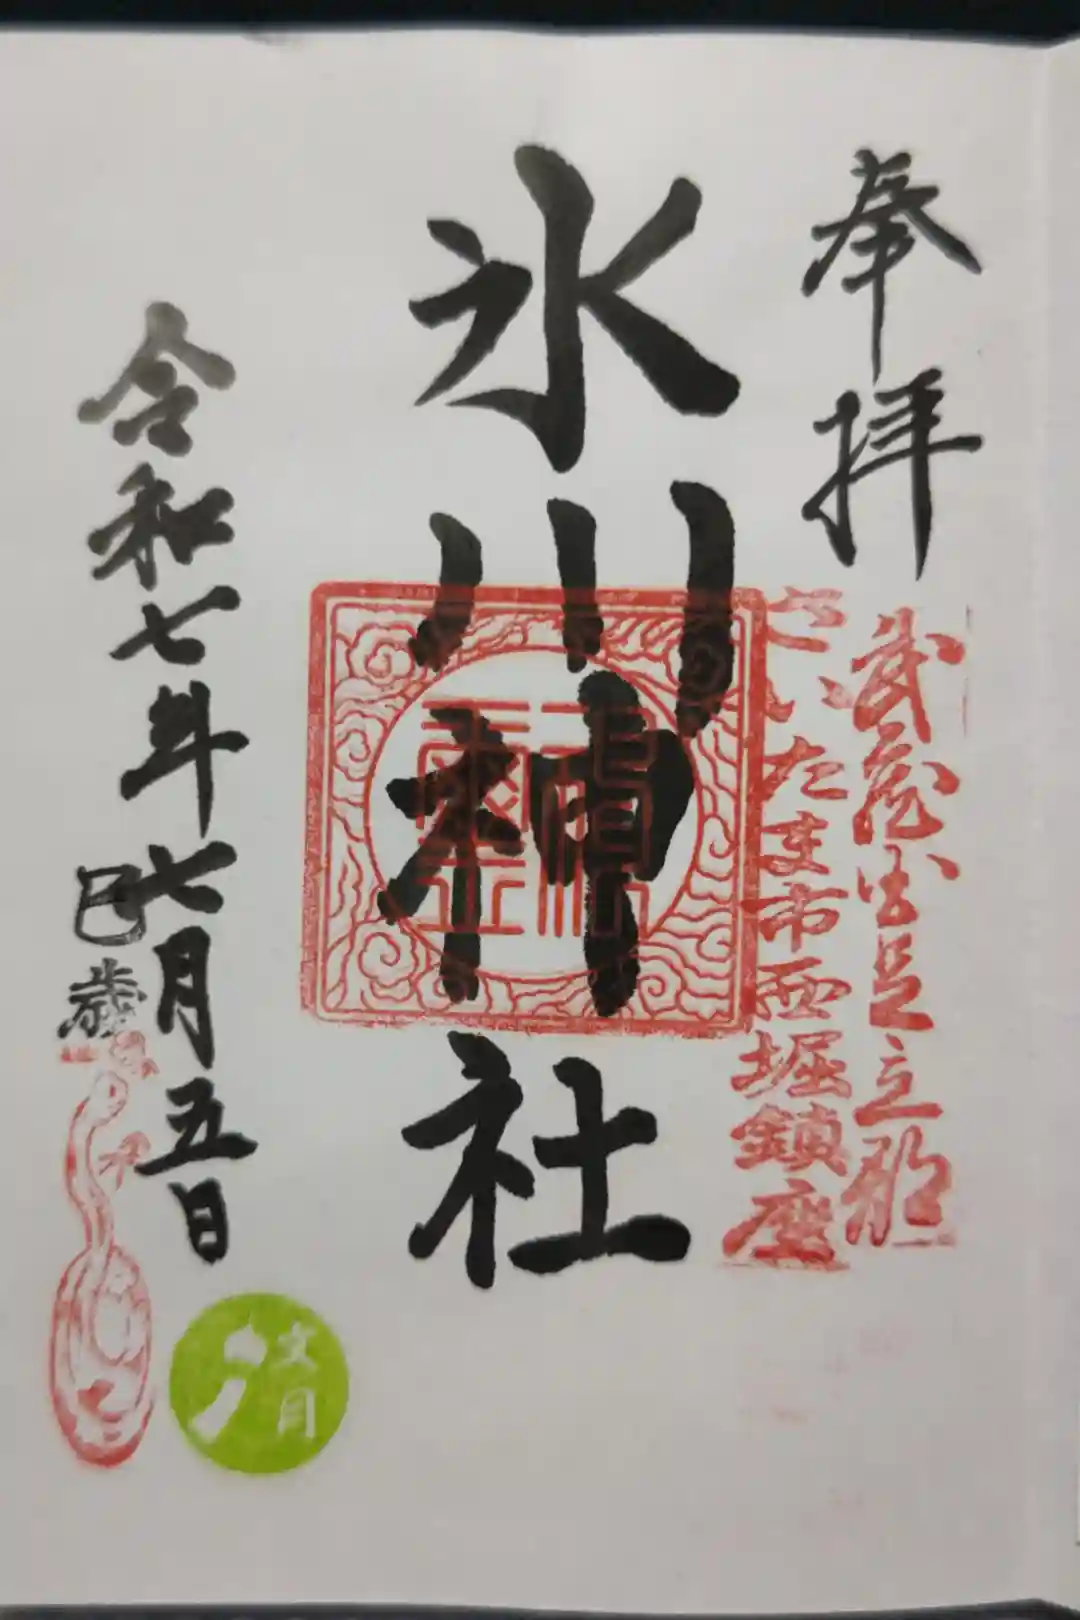 奉拝
武蔵国足立郡
さいたま市西堀鎮座
氷川神社
令和七年七月五日
巳歳
文月